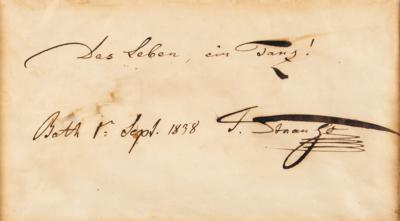 Das Leben, ein Tanz!
Bath 1r. Sept. 1838 J. Strauss